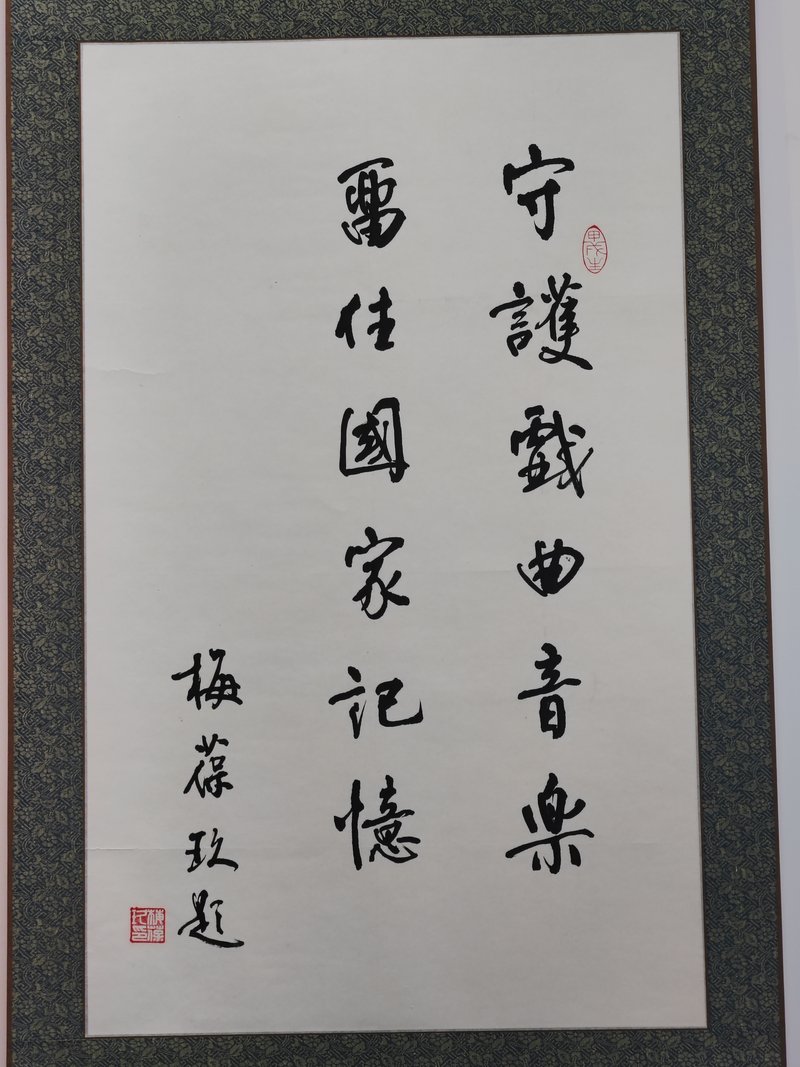 守護戲曲音樂
甲戌生
留住國家記憶
梅葆玖題
梅葆玖印